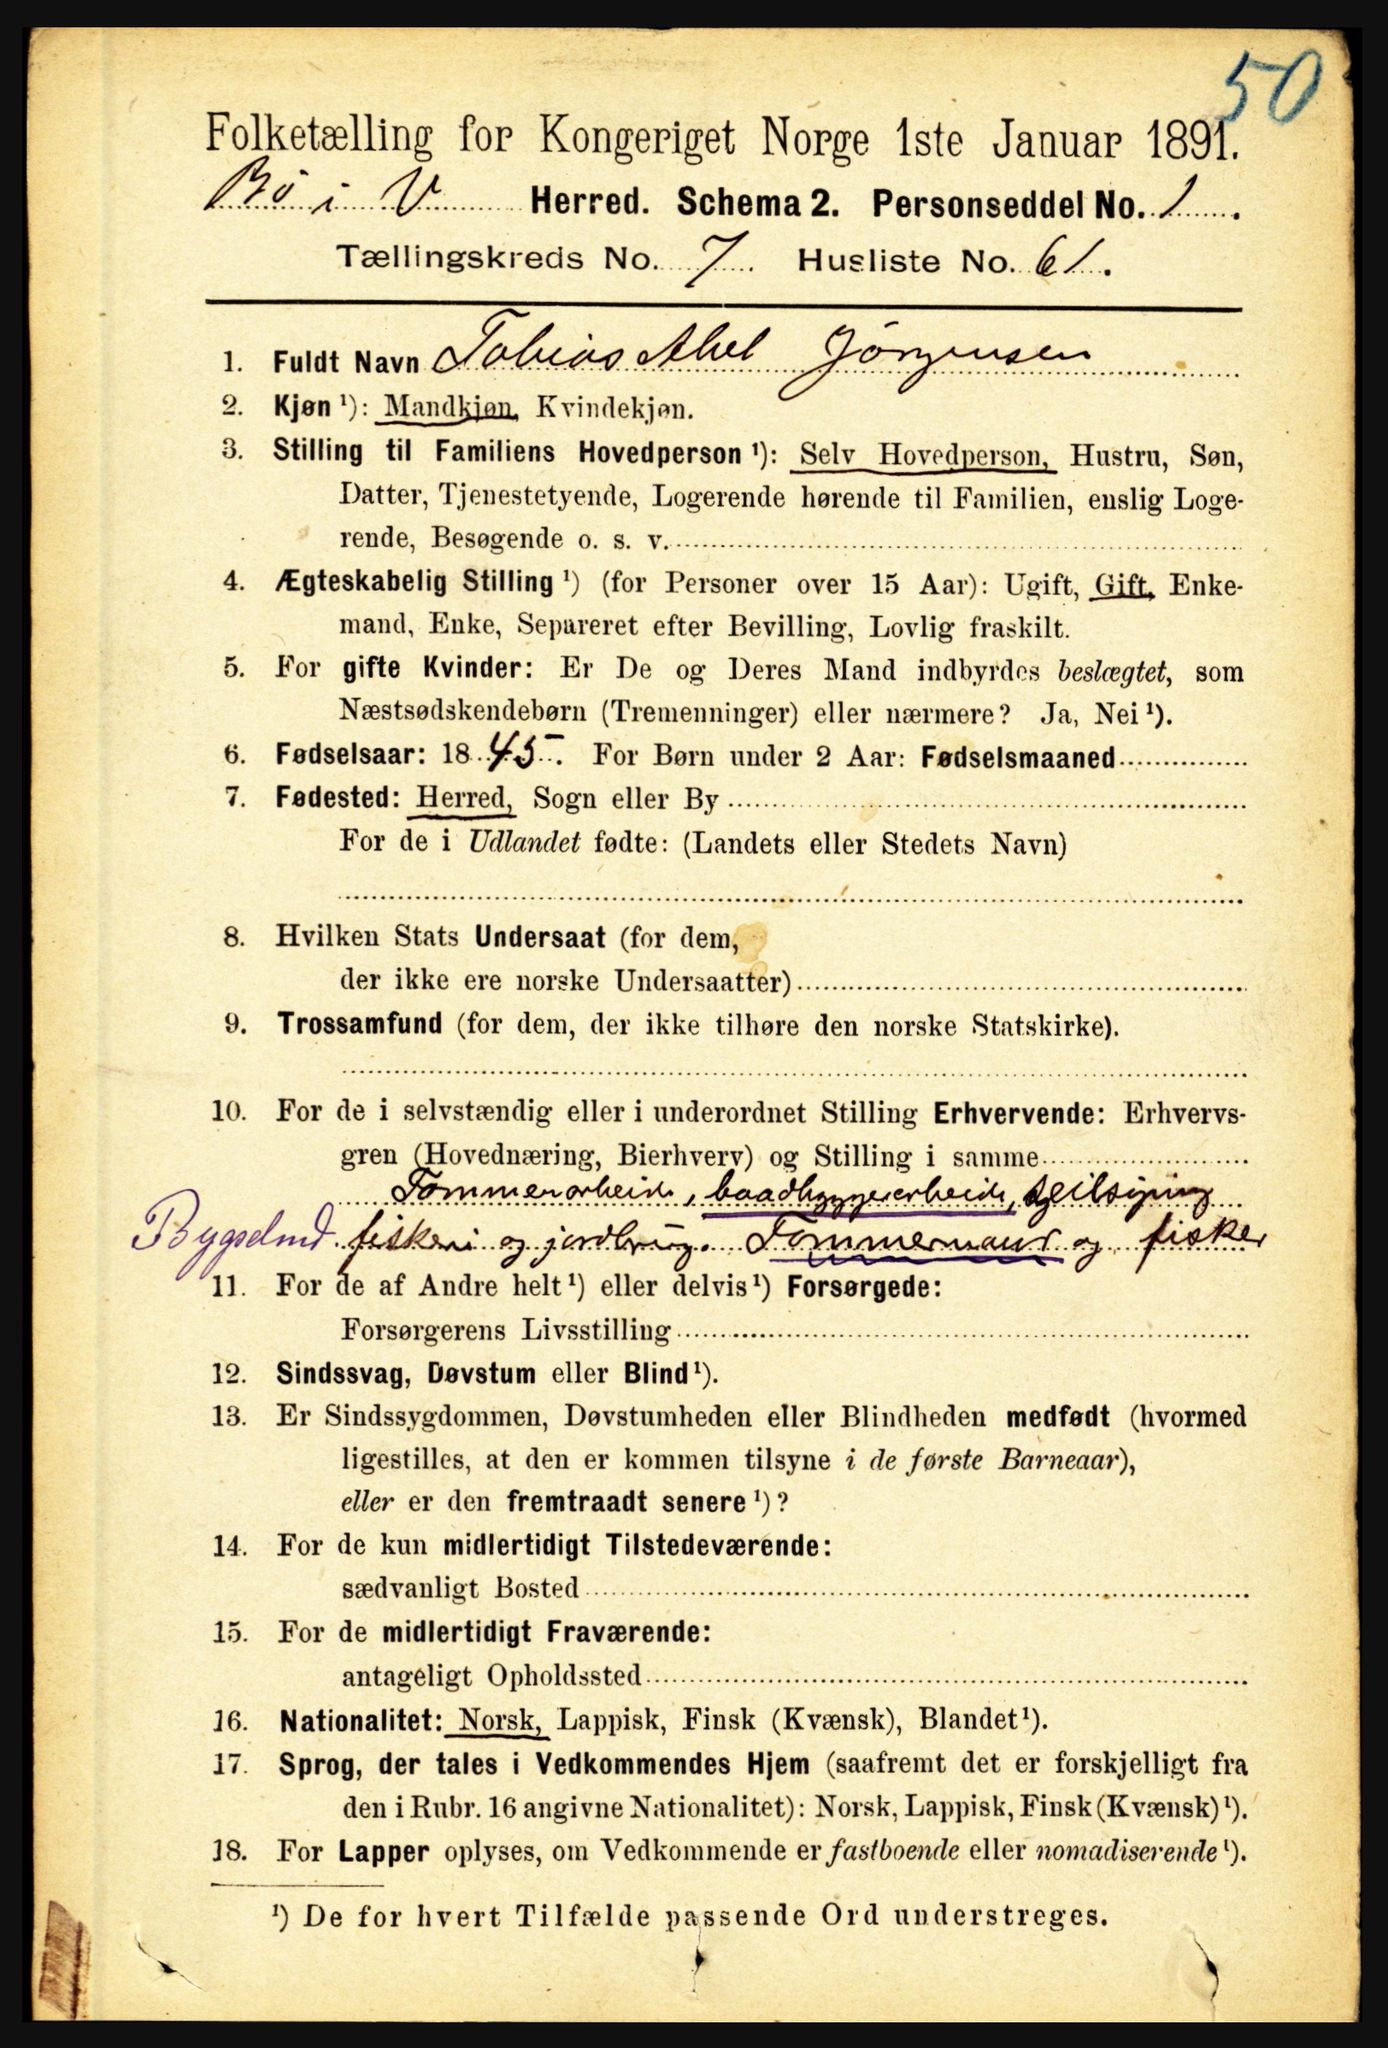 50
Folketælling for Kongeriget Norge 1ste Januar 1891.
Bö i V Herred. Schema 2. Personseddel No. 1.
Tællingskreds No. 7 Husliste No. 61.
1. Fuldt Navn Tobias Abel Jörgensen
2. Kjøn ¹): Mandkjøn, Kvindekjøn.
3. Stilling til Familiens Hovedperson ¹): Selv Hovedperson, Hustru, Søn,
Datter, Tjenestetyende, Logerende hørende til Familien, enslig Loge-
rende, Besøgende o. s. v.
4. Ægteskabelig Stilling ¹) (for Personer over 15 Aar): Ugift, Gift, Enke-
mand, Enke, Separeret efter Bevilling, Lovlig fraskilt.
5. For gifte Kvinder: Er De og Deres Mand indbyrdes beslægtet, som
Næstsødskendebørn (Tremenninger) eller nærmere? Ja, Nei ¹).
6. Fødselsaar: 1845. For Børn under 2 Aar: Fødselsmaaned
7. Fødested: Herred, Sogn eller By
For de i Udlandet fødte: (Landets eller Stedets Navn)
8. Hvilken Stats Undersaat (for dem,
der ikke ere norske Undersaatter)
9. Trossamfund (for dem, der ikke tilhøre den norske Statskirke).
10. For de i selvstændig eller i underordnet Stilling Erhvervende: Erhvervs-
gren (Hovednæring, Bierhverv) og Stilling i samme
Tømmerarbeide, baadbyggerarbeide,
Bygselmd fiskeri og jordbrug. Tømmermand og fisker
11. For de af Andre helt ¹) eller delvis ¹) Forsørgede:
Forsørgerens Livsstilling
12. Sindssvag, Døvstum eller Blind ¹).
13. Er Sindssygdommen, Døvstumheden eller Blindheden medfødt (hvormed
ligestilles, at den er kommen tilsyne i de første Barneaar),
eller er den fremtraadt senere ¹)?
14. For de kun midlertidigt Tilstedeværende:
sædvanligt Bosted
15. For de midlertidigt Fraværende:
antageligt Opholdssted
16. Nationalitet: Norsk, Lappisk, Finsk (Kvænsk), Blandet ¹).
17. Sprog, der tales i Vedkommendes Hjem (saafremt det er forskjelligt fra
den i Rubr. 16 angivne Nationalitet): Norsk, Lappisk, Finsk (Kvænsk) ¹).
18. For Lapper oplyses, om Vedkommende er fastboende eller nomadiserende ¹).
¹) De for hvert Tilfælde passende Ord understreges.